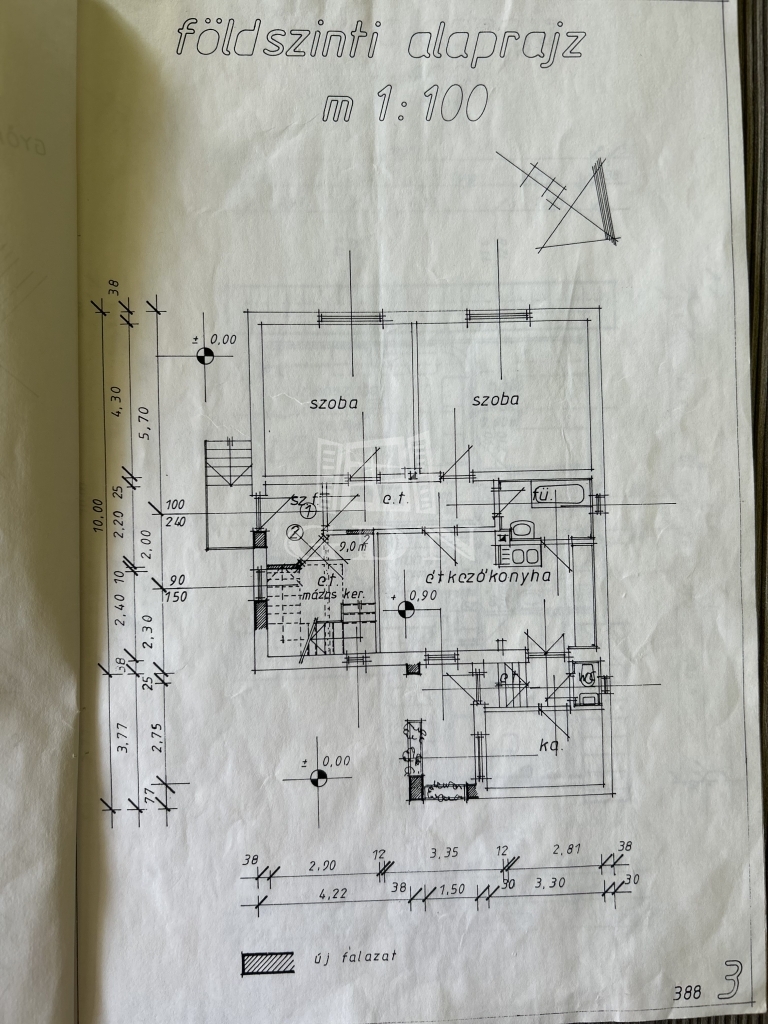 földszinti alaprajz
m 1:100
38
± 0,00
4,30
5,70
szoba
szoba
25
sz.f.
1
e.t.
fü.
100
240
10,00
2,20
2,00
2
9,0 m²
10
90
150
et
étkezőkonyha
mázas ker.
+ 0,90
2,40
2,30
38
25
et
wc
3,77
2,75
± 0,00
ka.
77
38
2,90
12
3,35
12
2,81
38
4,22
38
1,50
30
3,30
30
új falazat
388
3